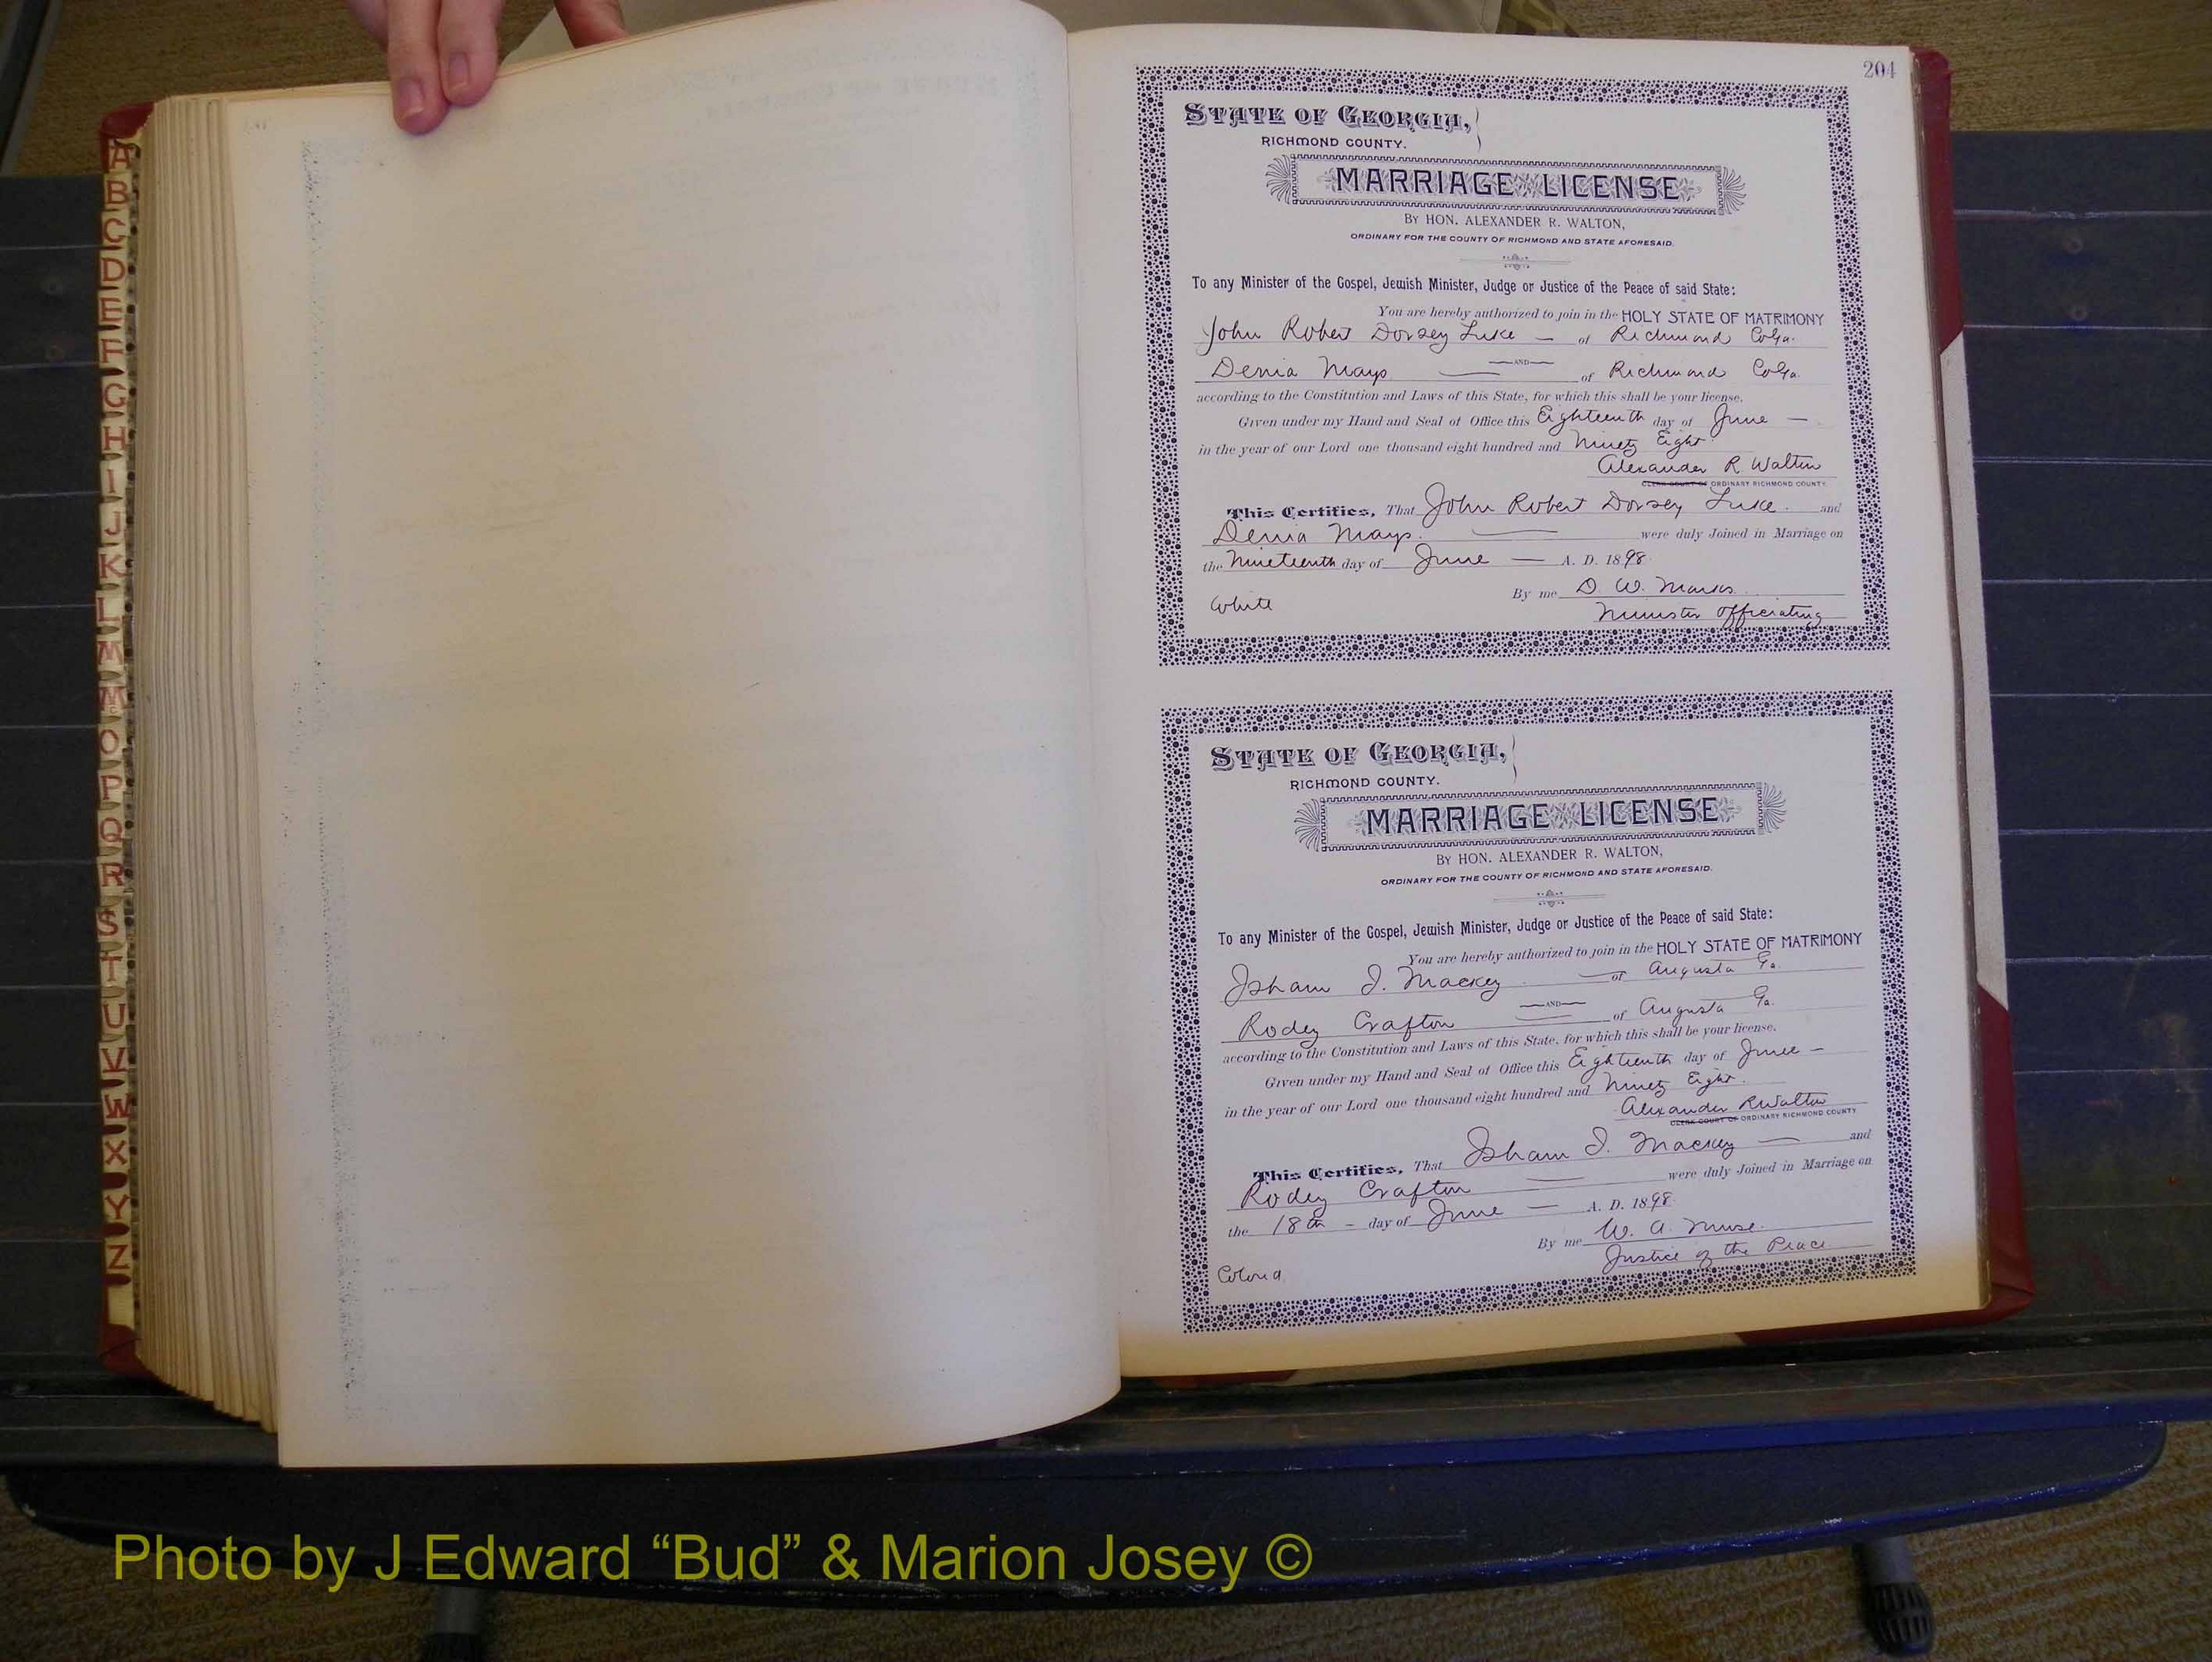 A
B
C
D
E
F
G
H
I
J
K
L
M
Mc
O
P
Q
R
S
T
U
V
W
X
Y
Z
204
STATE OF GEORGIA,
RICHMOND COUNTY.
MARRIAGE LICENSE
BY HON. ALEXANDER R. WALTON,
ORDINARY FOR THE COUNTY OF RICHMOND AND STATE AFORESAID.
To any Minister of the Gospel, Jewish Minister, Judge or Justice of the Peace of said State:
You are hereby authorized to join in the HOLY STATE OF MATRIMONY
John Robert Dorsey Luke — of Richmond Co Ga.
—AND—
Denia Mays — of Richmond Co Ga.
according to the Constitution and Laws of this State, for which this shall be your license.
Given under my Hand and Seal of Office this Eighteenth day of June —
in the year of our Lord one thousand eight hundred and Ninety Eight.
Alexander R. Walton
CLERK COURT OF ORDINARY RICHMOND COUNTY.
This Certifies, That John Robert Dorsey Luke. and
Denia Mays. — were duly Joined in Marriage on
the Nineteenth day of June — A. D. 1898.
By me D. W. Marks.
White
Minister Officiating
STATE OF GEORGIA,
RICHMOND COUNTY.
MARRIAGE LICENSE
BY HON. ALEXANDER R. WALTON,
ORDINARY FOR THE COUNTY OF RICHMOND AND STATE AFORESAID.
To any Minister of the Gospel, Jewish Minister, Judge or Justice of the Peace of said State:
You are hereby authorized to join in the HOLY STATE OF MATRIMONY
Isham I. Mackey — of Augusta Ga.
—AND—
Rodey Crafton — of Augusta Ga.
according to the Constitution and Laws of this State, for which this shall be your license.
Given under my Hand and Seal of Office this Eighteenth day of June —
in the year of our Lord one thousand eight hundred and Ninety Eight.
Alexander R Walton
CLERK COURT OF ORDINARY RICHMOND COUNTY
This Certifies, That Isham I. Mackey — and
Rodey Crafton — were duly Joined in Marriage on
the 18th — day of June — A. D. 1898.
By me W. A. Muse.
Justice of the Peace
Colored
Photo by J Edward “Bud” & Marion Josey ©